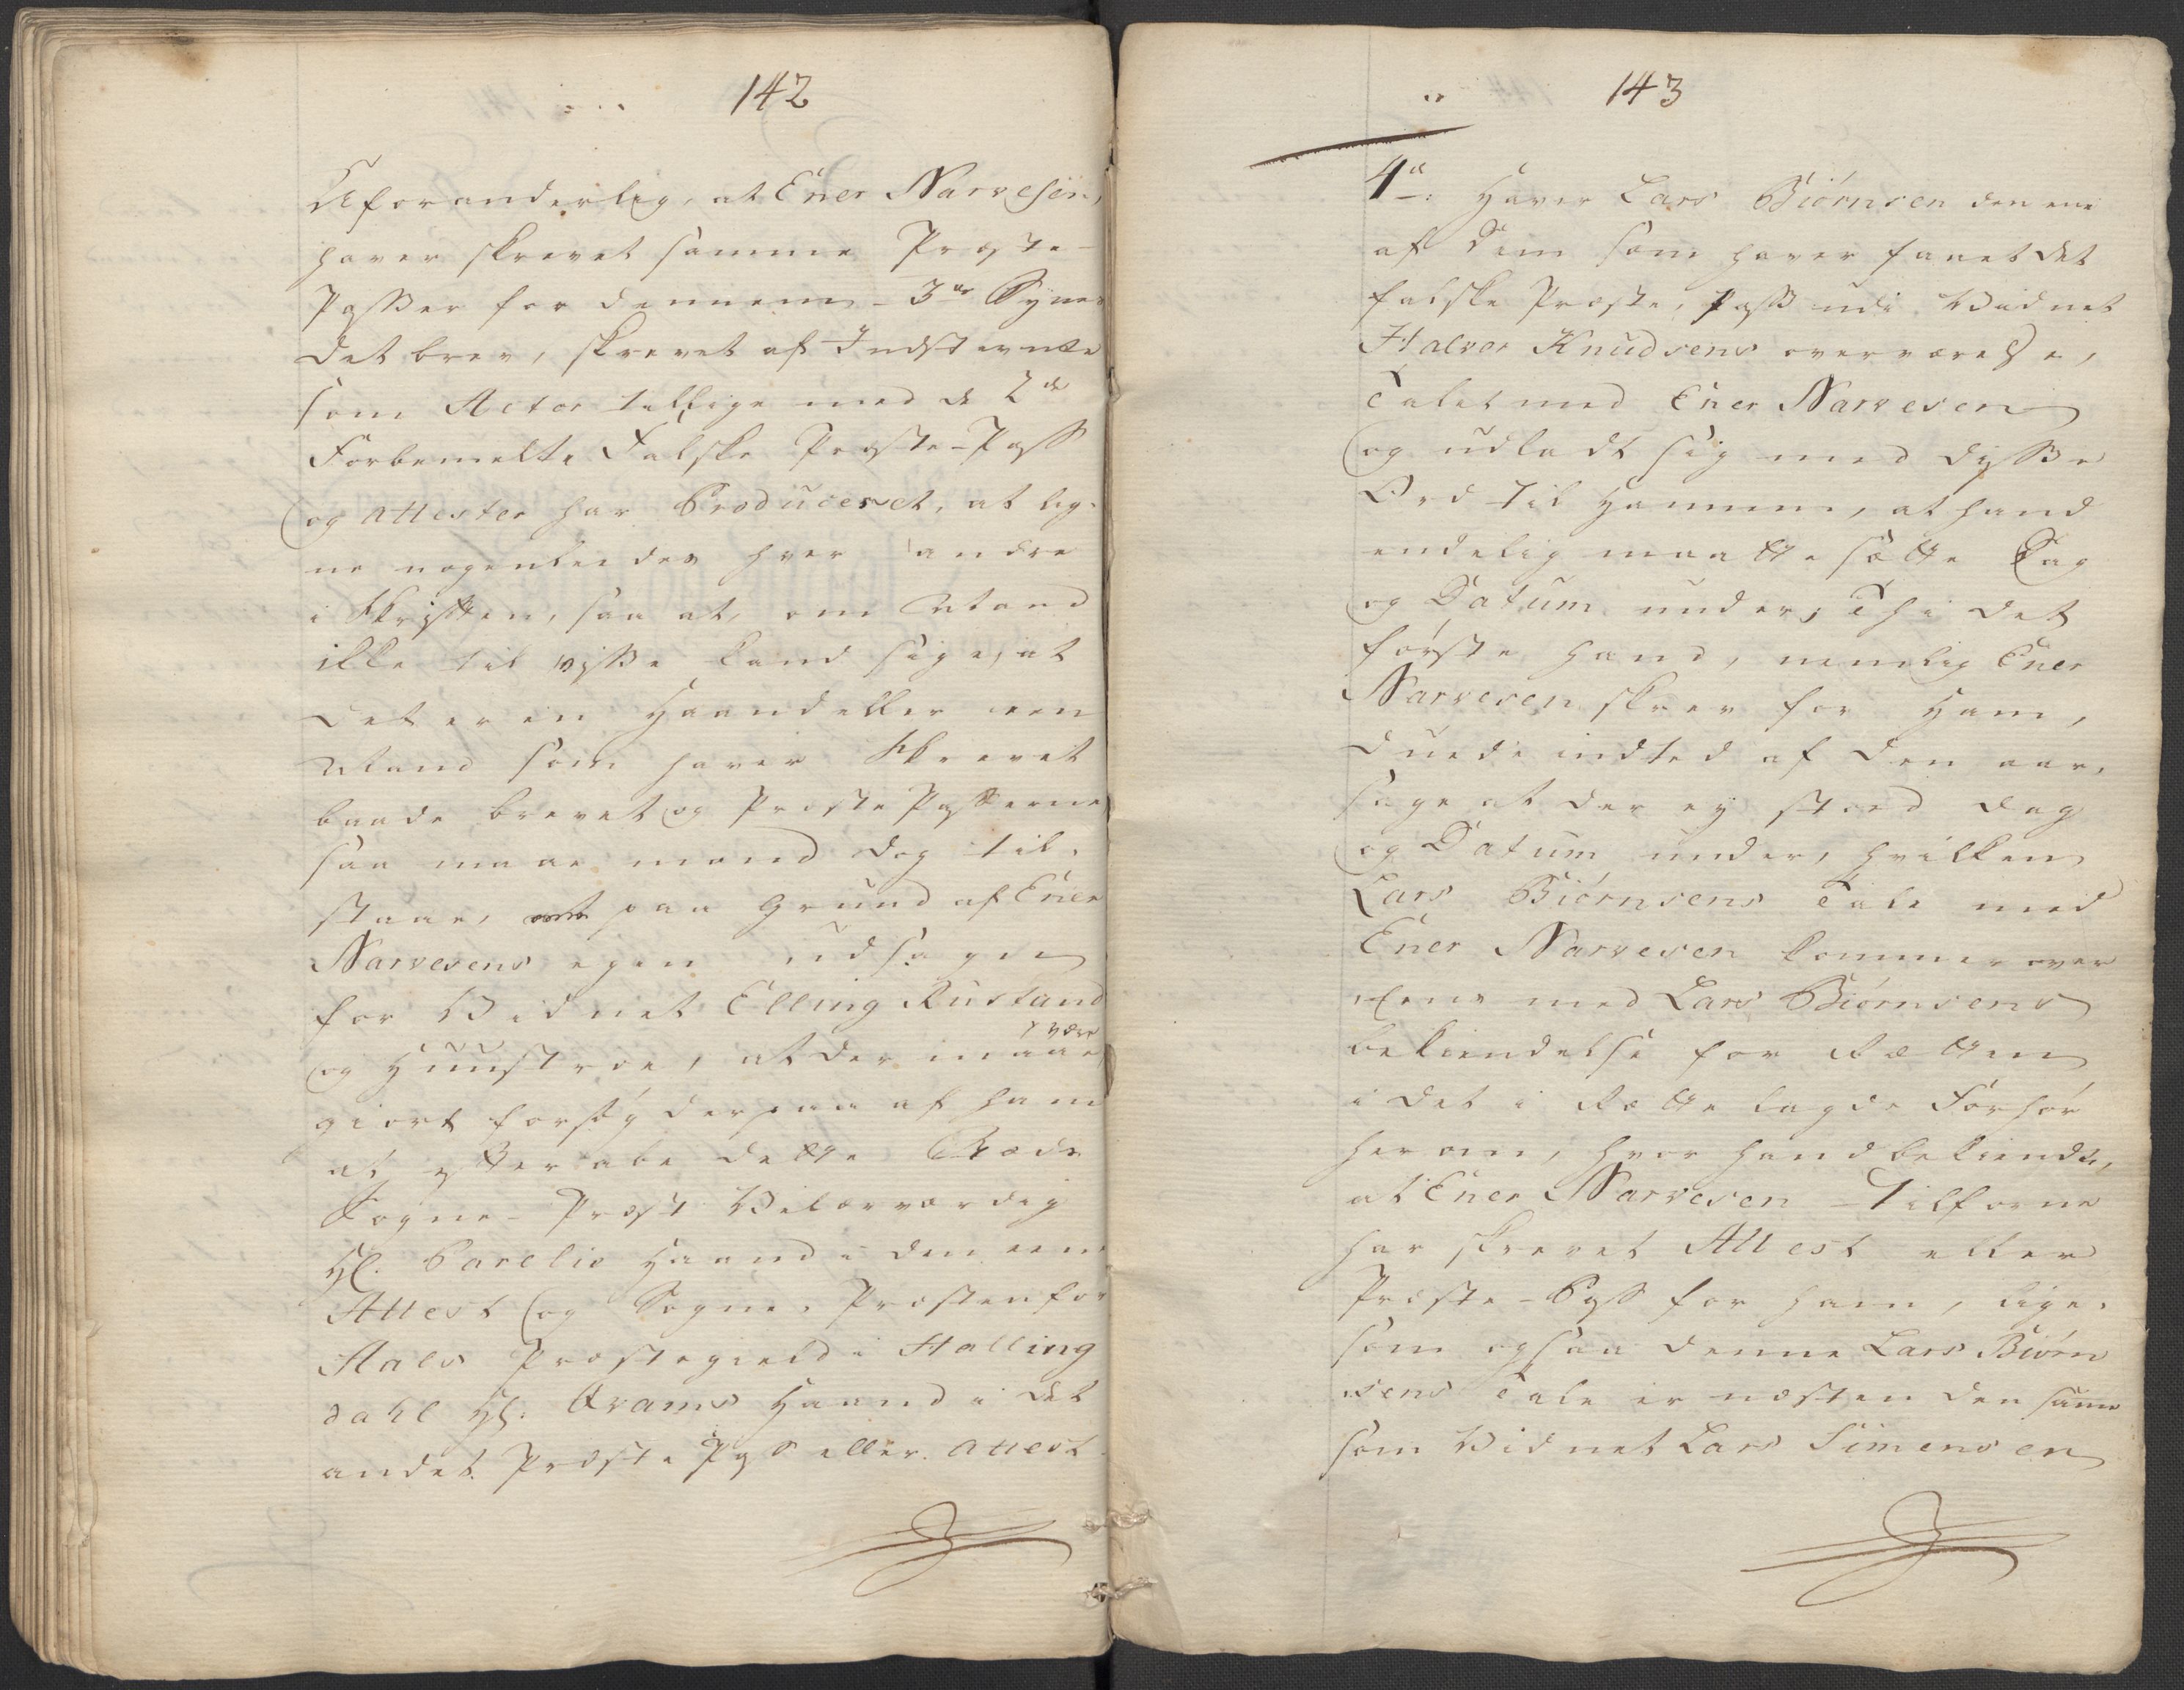 142
Uforanderlig, at Ener Narvesen,
haver skrevet samme Præste-
Passer for dennem - 3de Synes
det brev, skrevet af Indstevnte
som Actor tillige med de 2de
Forbemelte Falske Præste-Pass
og attester har Produceret, at lig-
ne nogenledes hver andre
i Skriften, saa at, om Mand
ikke til visse kand sige, at
det er en Haand eller een
Mand som haver Skrevet
baade brevet og Præste Passerne
saa maae mand dog til-
staae, paa Grund af Ener
Narvesens egen udsagn
for Vidnet Elling Rustand
og Huustroe, at der maae være
giort forsøg derpaa af ham
at efterabe dette Stæds
Sogne-Præst Velærværdig
Hr. Parelio Haand i den eene
Attest og Sogne-Præsten for
Aals Præstegield i Halling
dahl Hr. Arams Haand i det
andet Præste Pass eller attest
143
4de: Haver Lars Biørnsen den ene
af dem som haver faaet det
falske Præste-Pass udi Vidnet
Halvor Knudsens overværelse,
Talet med Ener Narvesen
og udladt sig med disse
Ord til Hannem, at hand
endelig maatte sætte Dag
og Datum under, Thi det
første hand, nemlig Ener
Narvesen skrev for Ham,
duede indted af den aar-
sage at der ey stoed dag
og Datum under, hvilken
Lars Biørnsens Tale med
Ener Narvesen kommer over
eens med Lars Biørnsens
bekiendelse for Rætten
i det i Rætte lagde Forhør
herom, hvor hand bekiendte,
at Ener Narvesen Tilforne
har skrevet Attest eller
Præste-Pass for ham, lige-
som ogsaa denne Lars Biørn
sens Tale er næsten den samme
som Vidnet Lars Simensen